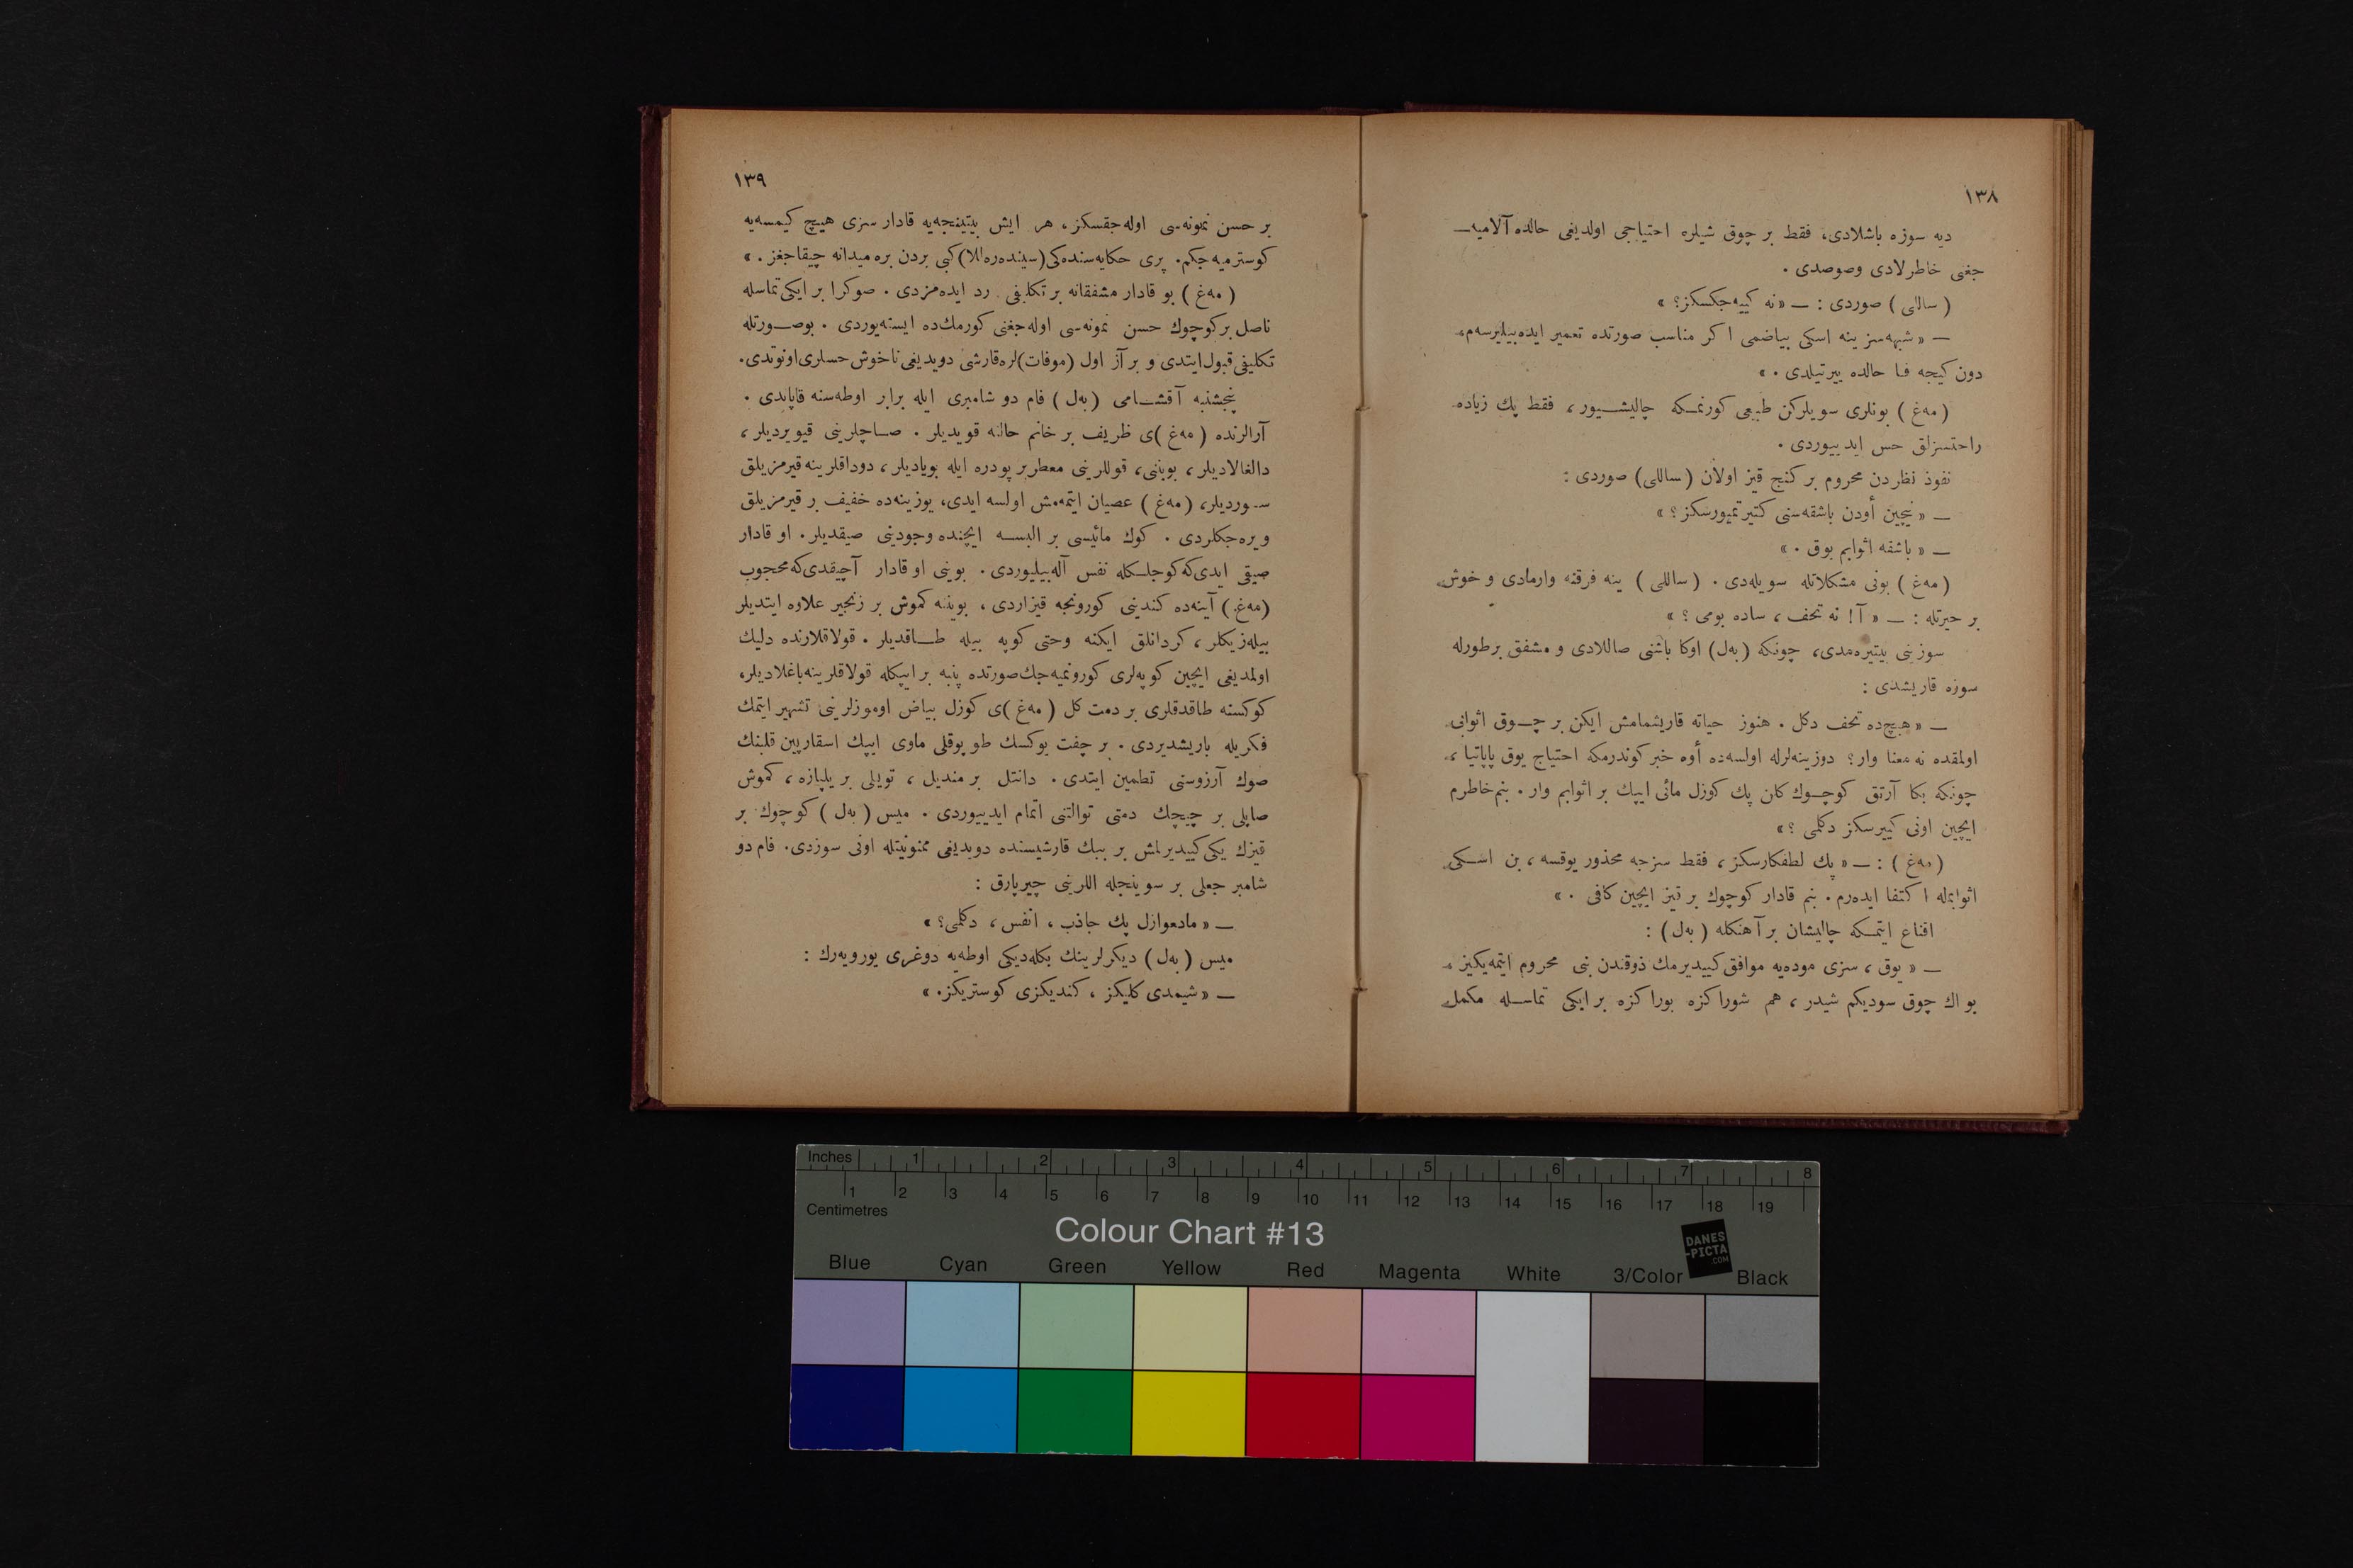 ١٣٨
دیه سوزه باشلادی، فقط بر چوق شیلره احتیاجی اولدیغی حالده آلامیه‌ـ
جغنی خاطرلادی وصوصدی .
( ساللی ) صوردی : ـ «نه کییه‌جکسکز؟ »
ـ « شبهه‌سز ینه اسکی بیاضمی ا کر مناسب صورتده تعمیر ایده‌بیلیرسه‌م،
دون کیجه فنا حالده ییرتیلدی . »
( مه‌غ ) بونلری سویلرکن طبیعی کورنمکه چالیشیور، فقط پك زیاده
راحتسزلق حس ایدییوردی .
نفوذ نظردن محروم بر کنج قیز اولان ( ساللی ) صوردی :
ـ « نیچین أودن باشقه‌سنی کتیرتمیورسکز؟ »
ـ « باشقه اثوابم یوق . »
( مه‌غ ) بونی مشکلاتله سویله‌دی . ( ساللی ) ینه فرقنه وارمادی و خوش
بر حیرتله : ـ « آ! نه تحف ، ساده بومی ؟ »
سوزینی بیتیره‌مدی، چونکه ( به‌ل ) اوکا باشنی صاللادی و مشفق بر طورله
سوزه قاریشدی :
ـ « هیچ‌ده تحف دکل . هنوز حیاته قاریشمامش ایکن بر چوق اثوابی
اولمقده نه معنا وار؟ دوزینه‌لرله اولسه‌ده أوه خبر کوندرمکه احتیاج یوق پاپاتیا ،
چونکه بکا آرتق کوچوك کلن پك کوزل مائی ایپك بر اثوابم وار . بنم خاطرم
ایچین اونی کییرسکز دکلمی ؟ »
( مه‌غ ) : ـ « پك لطفکارسکز ، فقط سزجه محذور یوقسه ، بن اسکی
اثوابمله ا کتفا ایده‌رم . بنم قادار کوچوك بر قیز ایچین کافی . »
اقناع ایتمکه چالیشان بر آهنکله ( به‌ل ) :
ـ « یوق ، سزی موده‌یه موافق کییدیرمك ذوقندن بنی محروم ایتمه‌یکیز .
بو اك چوق سودیکم شیدر ، هم شوراکزه بوراکزه بر ایکی تماسله مکمل
١٣٩
بر حسن نمونه‌سی اوله‌جقسکز ، هر ایش بیتینجه‌یه قادار سزی هیچ کیمسه‌یه
کوسترمیه‌جکم. پری حکایه‌سنده‌کی (سینده‌ره‌للا) کبی بردن بره میدانه چیقاجغز . »
( مه‌غ ) بو قادار مشفقانه بر تکلیفی رد ایده‌مزدی . صوکرا بر ایکی تماسله
ناصل بر کوچوك حسن نمونه‌سی اوله‌جغنی کورمك‌ده ایسته‌یوردی . بوصورتله
تکلیفی قبول ایتدی و بر آز اول (موفات)لره قارشی دویدیغی ناخوش حسلری اونوتدی.
پنجشنبه آقشامی ( به‌ل ) فام دو شامبری ایله برابر اوطه‌سنه قاپاندی .
آرالرنده ( مه‌غ )ی ظریف بر خانم حالنه قویدیلر . صاچلرینی قیویردیلر ،
دالغالادیلر ، بوینی، قوللرینی معطر بر پودره ایله بویادیلر ، دوداقلرینه قیرمزیلق
سوردیلر، ( مه‌غ ) عصیان ایتمه‌مش اولسه ایدی، یوزینه‌ده خفیف بر قیرمزیلق
ویره‌جکلردی . کوك مائیسی بر البسه ایچنده وجودینی صیقدیلر . او قادار
صیقی ایدی‌که کوجلکله نفس آله‌بیلیوردی . بوینی او قادار آچیقدی‌که محجوب
(مه‌غ) آینه‌ده کندینی کورونجه قیزاردی ، بویننه کموش بر زنجیر علاوه ایتدیلر
بیله‌زیکلر ، کردانلق ایکنه وحتی کوپه بیله طاقدیلر . قولاقلارنده دلیك
اولمدیغی ایچین کوپه‌لری کورونمیه‌جك صورتده پنبه بر ایپکله قولاقلرینه باغلادیلر،
کوکسنه طاقدقلری بر دمت کل ( مه‌غ )ی کوزل بیاض اوموزلرینی تشهیر ایتمك
فکریله باریشدیردی . بر چفت یوکسك طوپوقلی ماوی ایپك اسقارپین قلبنك
صوك آرزوسنی تطمین ایتدی . دانتل بر مندیل ، تویلی بر یلپازه ، کموش
صاپلی بر چیچك دمتی توالتنی اتمام ایدییوردی . میس ( به‌ل ) کوچوك بر
قیزك یکی کییدیرلمش بر ببك قارشیسنده دویدیغی ممنونیتله اونی سوزدی. فام دو
شامبر جعلی بر سوینجله اللرینی چیرپارق :
ـ « مادموازل پك جاذب ، انفس ، دکلمی؟ »
میس ( به‌ل ) دیکرلرینك بکله‌دیکی اوطه‌یه دوغری یورویه‌رك :
ـ « شیمدی کلیکز ، کندیکزی کوستریکز. »
Inches 1 2 3 4 5 6 7 8
1 2 3 4 5 6 7 8 9 10 11 12 13 14 15 16 17 18 19
Centimetres
Colour Chart #13
DANES
-PICTA
.COM
Blue Cyan Green Yellow Red Magenta White 3/Color Black